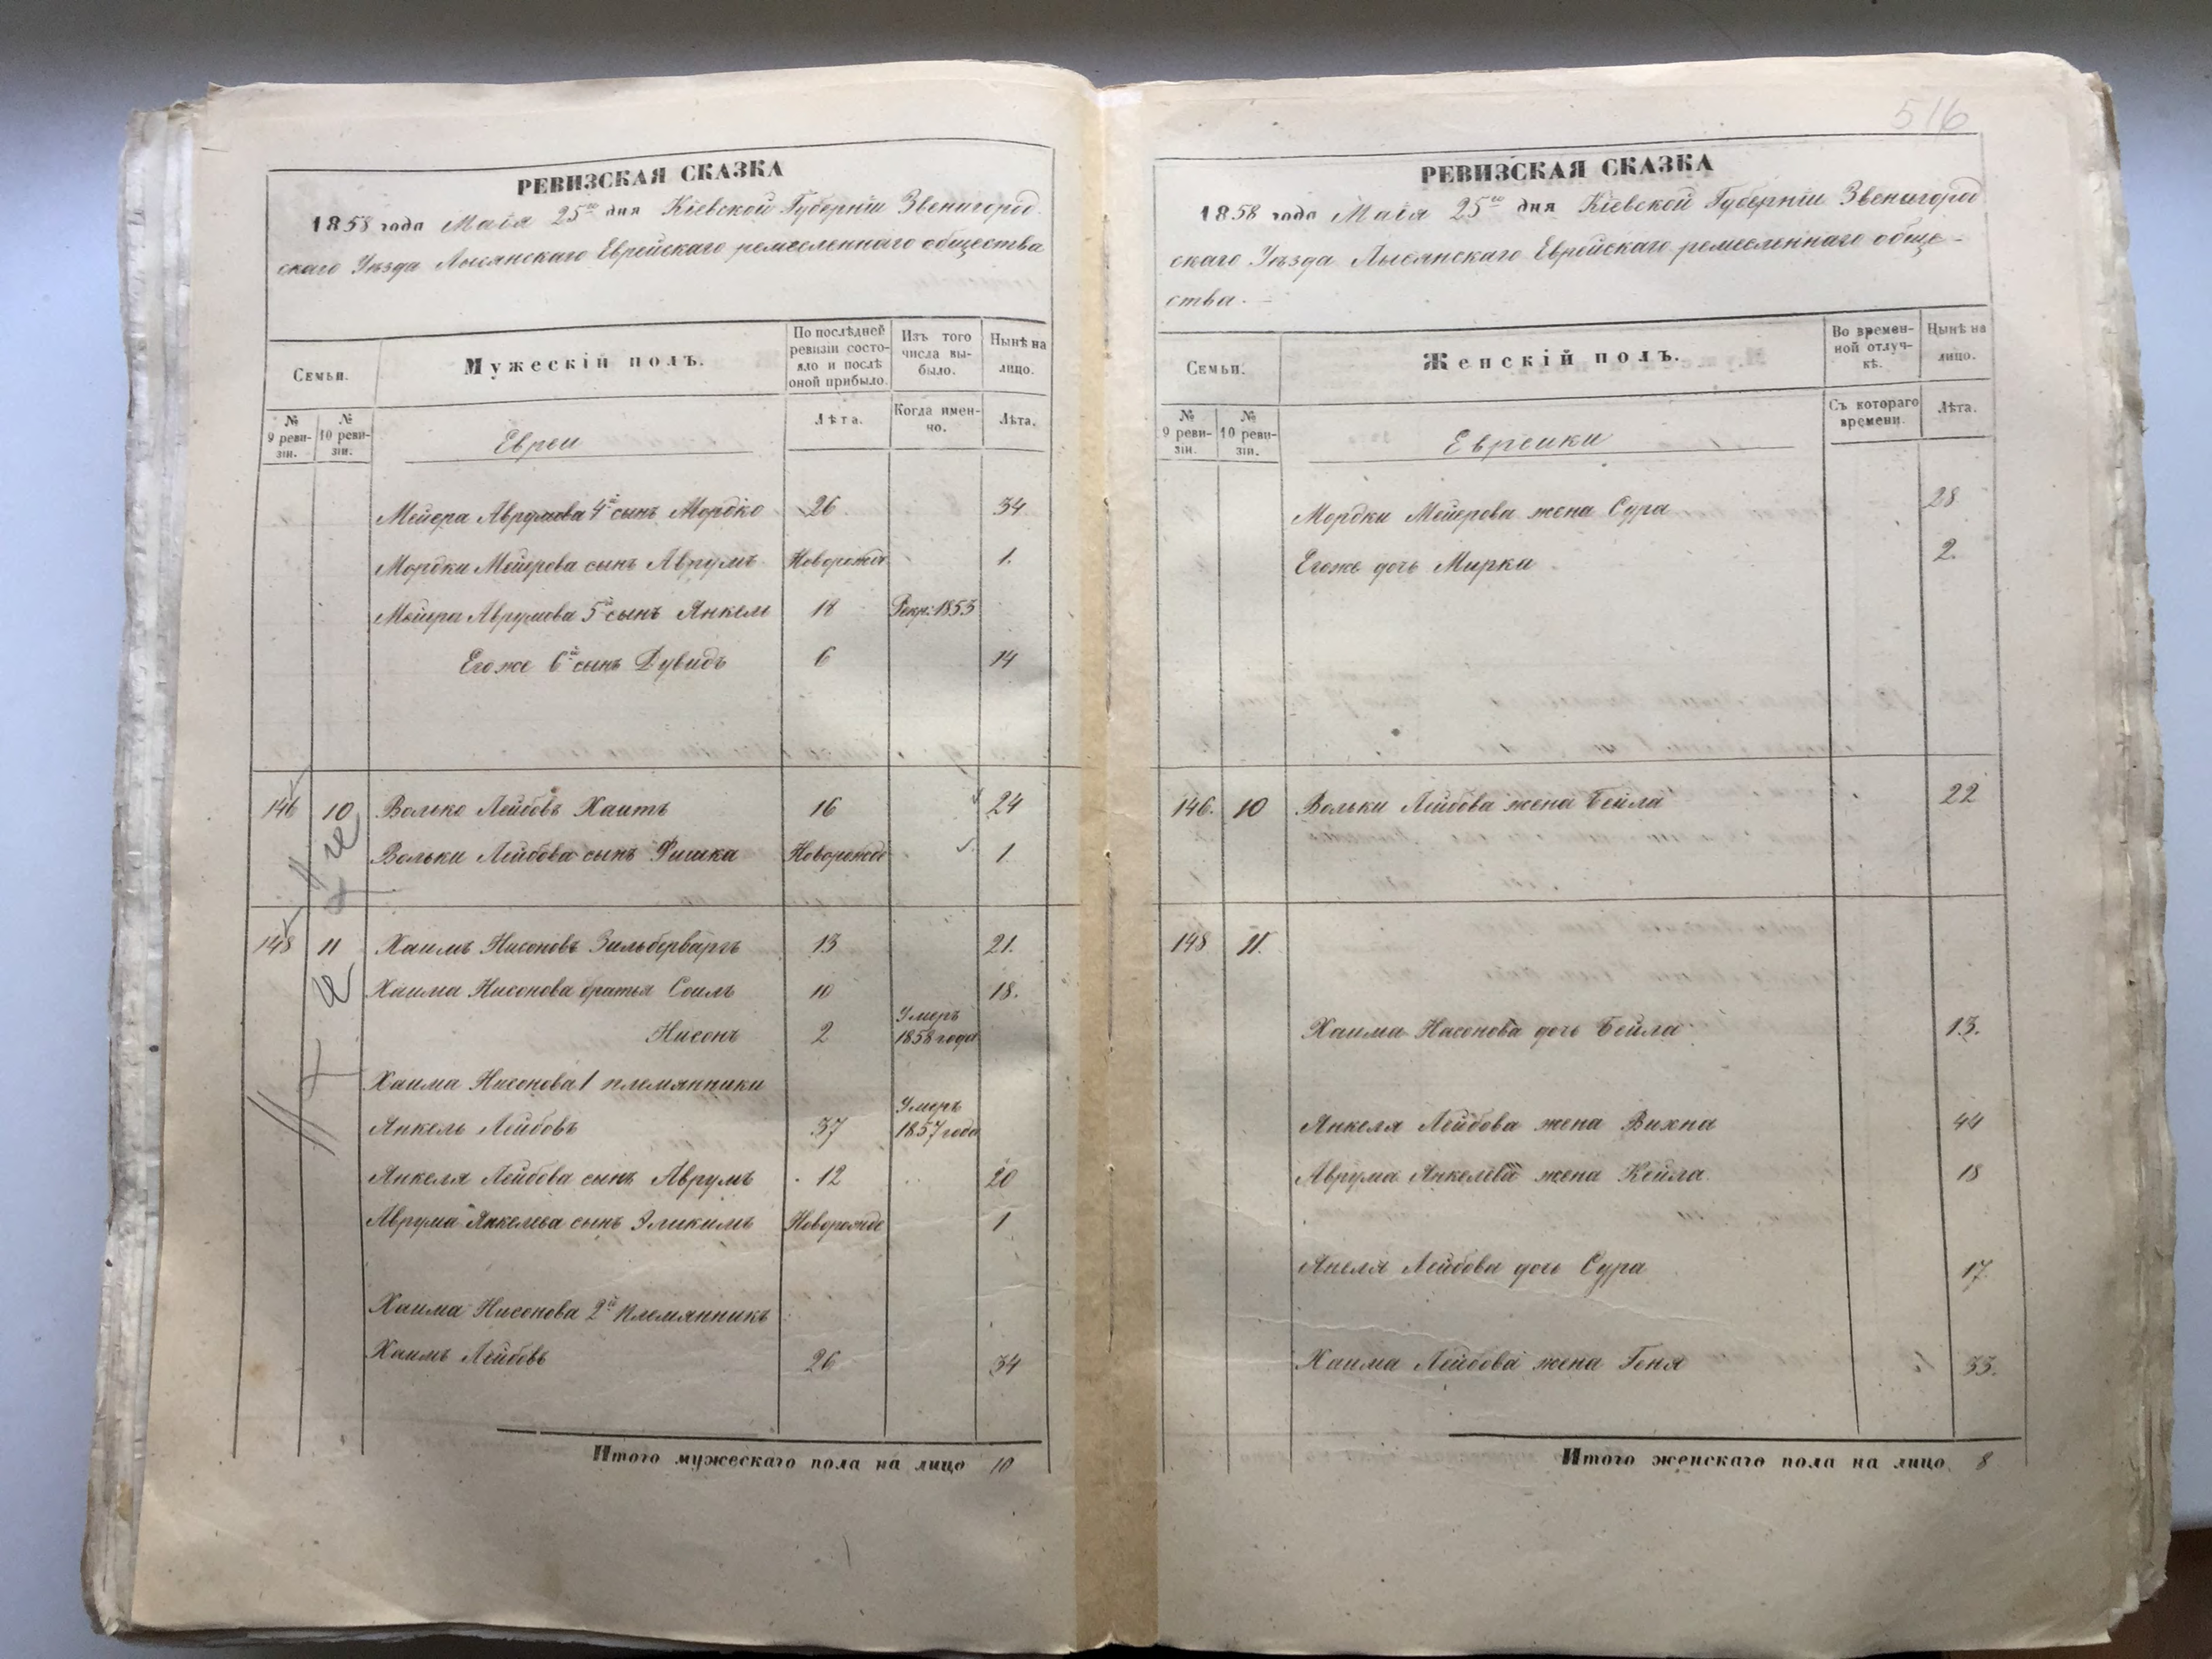 РЕВИЗСКАЯ СКАЗКА
1858 года Маія 25го дня Кіевской Губерніи Звенигород
скаго Уѣзда Лысянскаго Еврейскаго ремесленнаго общества
Семьи.
Мужескій полъ.
По послѣдней ревизіи состояло и послѣ оной прибыло.
Изъ того числа выбыло.
Нынѣ на лицо.
№ 9 ревизіи.
№ 10 ревизіи.
Евреи
Лѣта.
Когда именно.
Лѣта.
Мейера Аврумова 4й сынъ Мордко 26 34
Мордки Мейерова сынъ Аврумъ Новорожде 1.
Мейера Аврумова 5й сынъ Янкель 18 Рекр: 1853
Егоже 6й сынъ Дувидъ 6 14
146 10 Волько Лейбовъ Хаитъ 16 24
Вольки Лейбова сынъ Фишка Новорожде 1.
148 11 Хаимъ Нисоновъ Зильберваргъ 13 21.
Хаима Нисонова братья Соилъ 10 18.
Нисонъ 2 Умеръ 1858 года
Хаима Нисонова 1 племянники
Янкель Лейбовъ 37 Умеръ 1857 года
Янкеля Лейбова сынъ Аврумъ 12 20
Аврума Янкелева сынъ Эликимъ Новорожде 1
Хаима Нисонова 2й племянникъ
Хаимъ Лейбовъ 26 34
Итого мужескаго пола на лицо 10
516
РЕВИЗСКАЯ СКАЗКА
1858 года Маія 25го дня Кіевской Губерніи Звенигород
скаго Уѣзда Лысянскаго Еврейскаго ремесленнаго обще-
ства.
Семьи.
Женскій полъ.
Во временной отлучкѣ.
Нынѣ на лицо.
№ 9 ревизіи.
№ 10 ревизіи.
Еврейки
Съ котораго времени.
Лѣта.
Мордки Мейерова жена Сура 28
Егоже дочь Мирка 2.
146. 10 Вольки Лейбова жена Бейла 22
148 11.
Хаима Нисонова дочь Бейла 13.
Янкеля Лейбова жена Вихна 44
Аврума Янкелева жена Кейла 18
Янеля Лейбова дочь Сура 17.
Хаима Лейбова жена Геня 33.
Итого женскаго пола на лицо 8